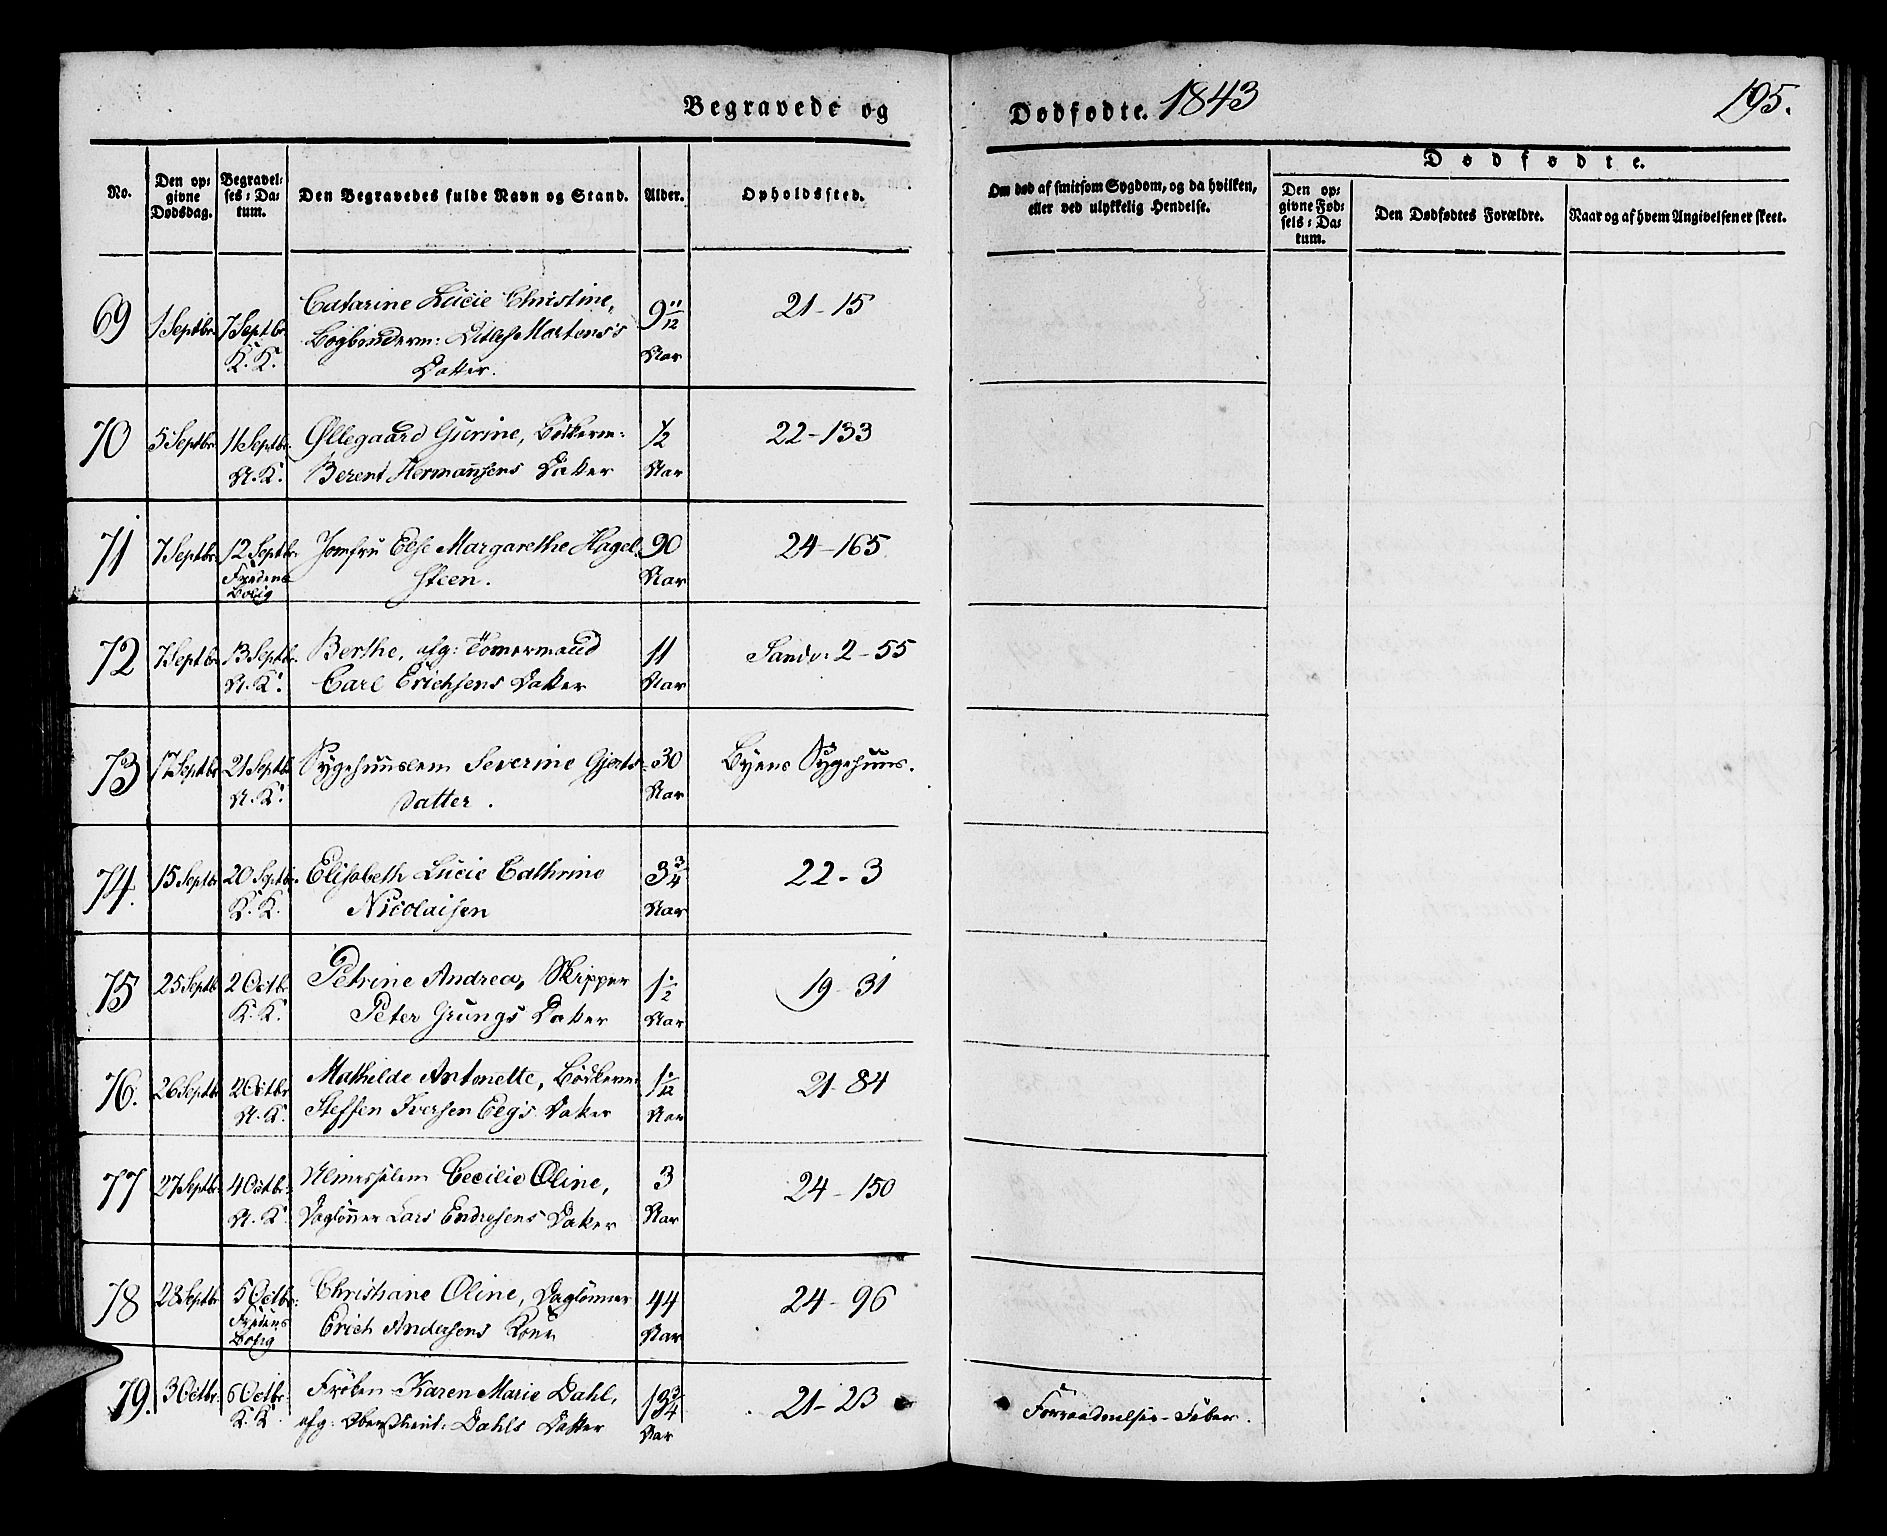 Begravede og
Dødfødte. 1843
195.
No.
Den op-
givne
Dødsdag.
Begravel-
ses-Da-
tum.
Den Begravedes fulde Navn og Stand.
Alder.
Opholdssted.
Om død af smitsom Sygdom, og da hvilken,
eller ved ulykkelig Hendelse.
Dødfødte.
Den op-
givne Fød-
sels-Da-
tum.
Den Dødfødtes Forældre.
Naar og af hvem Angivelsen er skeet.
69 1 Septbr. 7 Septbr. Catarine Lucie Christine, 9 11/12 21-15
K. K. Bogbinderm: Ditlef Martens's Aar
Datter.
70 5 Septbr. 11 Septbr. Øllegaard Gurine, Bödkerm: 1/2 22-133
N. K. Berent Hermansens Datter Aar
71 7 Septbr. 12 Septbr. Jomfru Else Margarethe Hagel- 90 24-165
Fredens Bolig steen. Aar
72 7 Septbr. 13 Septbr. Berthe, afg: Tömermand 11 Sandv: 2-55
N. K. Carl Erichsens Datter Aar
73 17 Septbr. 21 Septbr. Sygehuuslem Severine Gjerts- 30 Byens Sygehuus.
N. K. datter. Aar
74. 15 Septbr. 20 Septbr. Elisabeth Lucie Cathrine 3 3/4 22-3
K. K. Nicolaisen Aar
75 25 Septb 2 Octbr. Petrine Andrea, Skipper 1 1/2 19-31
K. K. Peter Grungs Datter Aar
76. 26 Septbr. 2 Octbr. Mathilde Antonette, Bödkerm: 1 1/12 21-84
N. K. Steffen Iversen Eegs Datter Aar
77 27 Septbr. 4 Octbr. Almuslem Cecilie Oline, 3 24-150
N. K. Daglönner Lars Endresens Datter Aar
78 28 Septbr. 5 Octbr. Christiane Oline, Daglönner 44 24-96
Fredens Bolig Erich Andersens Kone Aar
79. 3 Octbr. 6 Octbr. Fröken Karen Marie Dahl, 13 3/4 21-23 Forraadnelses-Feber.
K. K. afg: Oberstlieut: Dahls Datter Aar